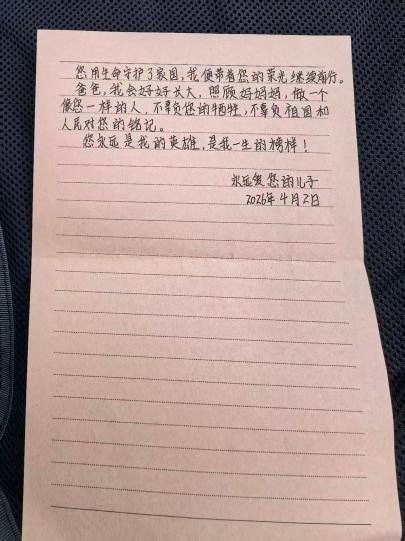 您用生命守护了家国，我便带着您的荣光继续前行。
爸爸，我会好好长大，照顾好妈妈，做一个
像您一样的人，不辜负您的牺牲，不辜负祖国和
人民对您的铭记。
您永远是我的英雄，是我一生的榜样！
永远爱您的儿子
2026年4月2日